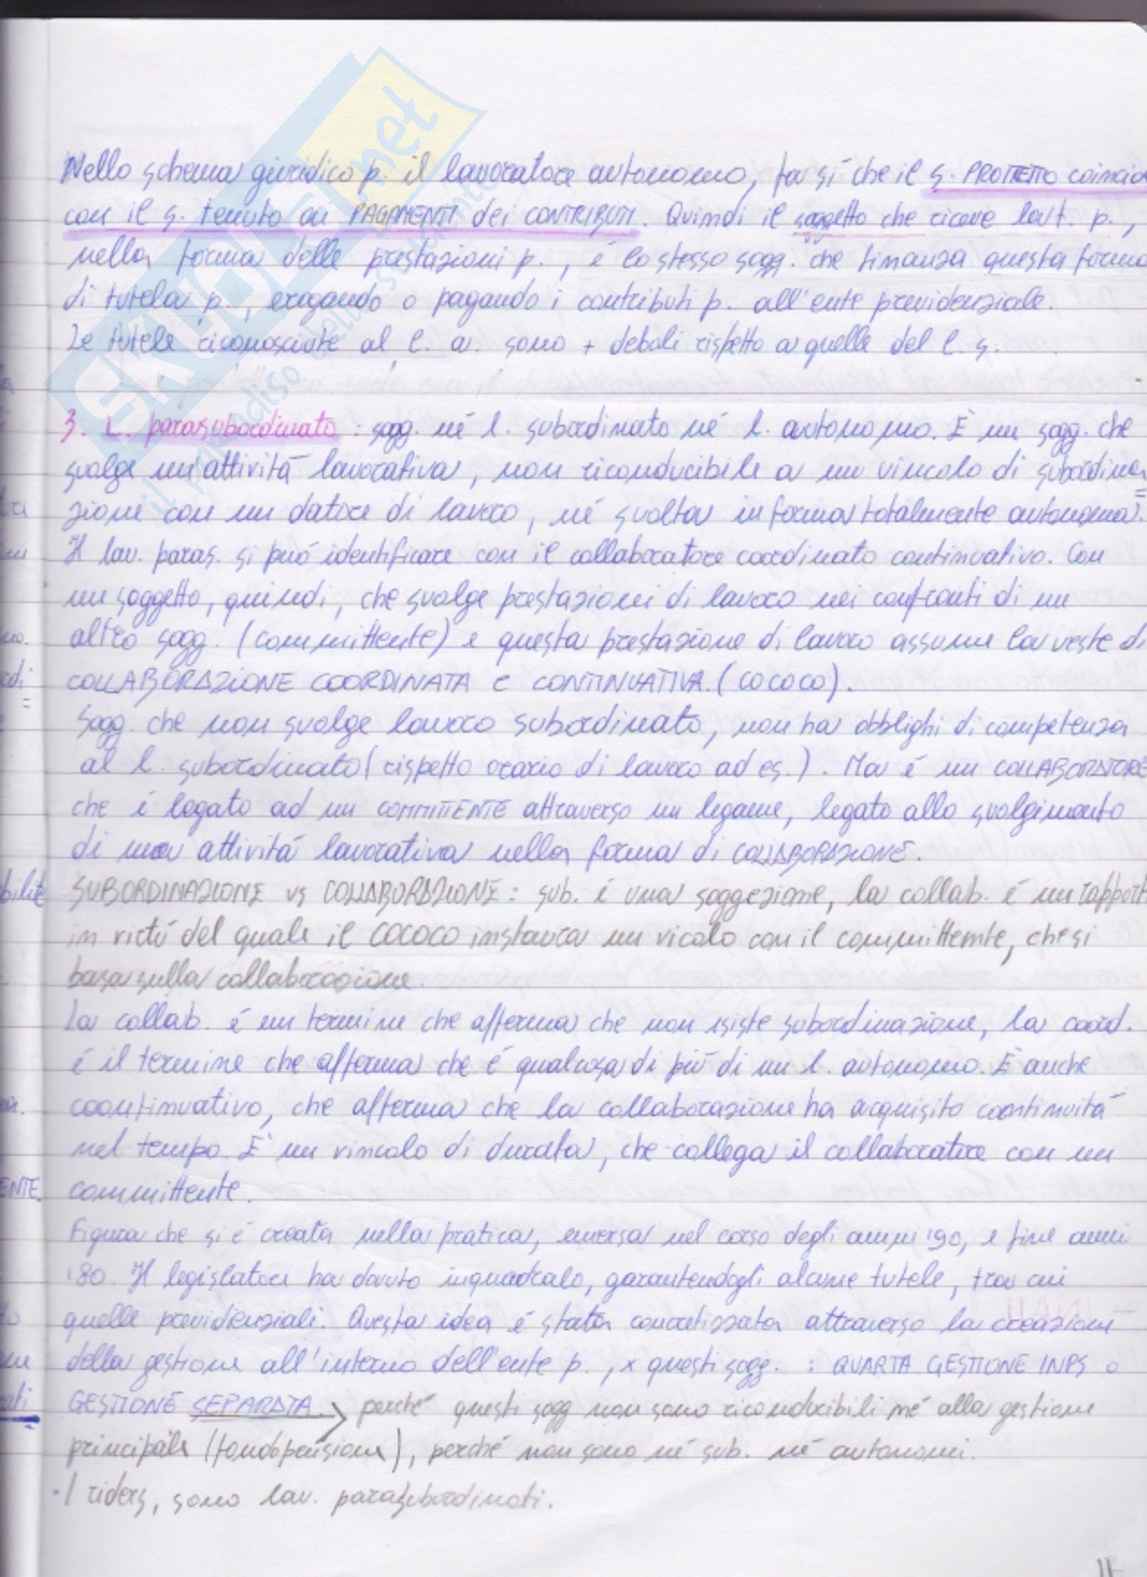 Nello schema giuridico p. il lavoratore autonomo, fa sì che il s. PROTETTO coincid
con il s. tenuto ai PAGAMENTI dei CONTRIBUTI. Quindi il soggetto che riceve la t. p.,
nella forma delle prestazioni p., è lo stesso sogg. che finanzia questa forma
di tutela p., erogando o pagando i contributi p. all'ente previdenziale.
Le tutele riconosciute al l. a. sono + deboli rispetto a quelle del l. s.
3. L. parasubordinato: sogg. né l. subordinato né l. autonomo. È un sogg. che
svolge un'attività lavorativa, non riconducibile a un vincolo di subordina
zione con un datore di lavoro, né svolta in forma totalmente autonoma.
Il lav. paras. si può identificare con il collaboratore coordinato continuativo. Con
un soggetto, quindi, che svolge prestazioni di lavoro nei confronti di un
altro sogg. (committente) e questa prestazione di lavoro assume la veste di
COLLABORAZIONE COORDINATA E CONTINUATIVA. (COCOCO).
Sogg. che non svolge lavoro subordinato, non ha obblighi di competenza
al l. subordinato (rispetto orario di lavoro ad es.). Ma è un COLLABORATORE
che è legato ad un COMMITTENTE attraverso un legame, legato allo svolgimento
di una attività lavorativa nella forma di COLLABORAZIONE.
SUBORDINAZIONE vs COLLABORAZIONE: sub. è una soggezione, la collab. è un rapport
in virtù del quale il COCOCO instaura un vicolo con il committente, che si
basa sulla collaborazione.
La collab. è un termine che afferma che non esiste subordinazione, la coord.
è il termine che afferma che è qualcosa di più di un l. autonomo. È anche
coontinuativo, che afferma che la collaborazione ha acquisito coontinuità
nel tempo. È un vincolo di durata, che collega il collaboratore con un
committente.
Figura che si è creata nella pratica, emersa nel corso degli anni '90, e fine anni
'80. Il legislatore ha dovuto inquadralo, garantendogli alcune tutele, tra cui
quelle previdenziali. Questa idea è stata concretizzata attraverso la creazione
della gestione all'interno dell'ente p., x questi sogg.: QUARTA GESTIONE INPS o
GESTIONE SEPARATA. > perché questi sogg non sono riconducibili né alla gestione
principale (fondo pensione), perché non sono né sub. né autonomi.
· I riders, sono lav. parasubordinati.
11